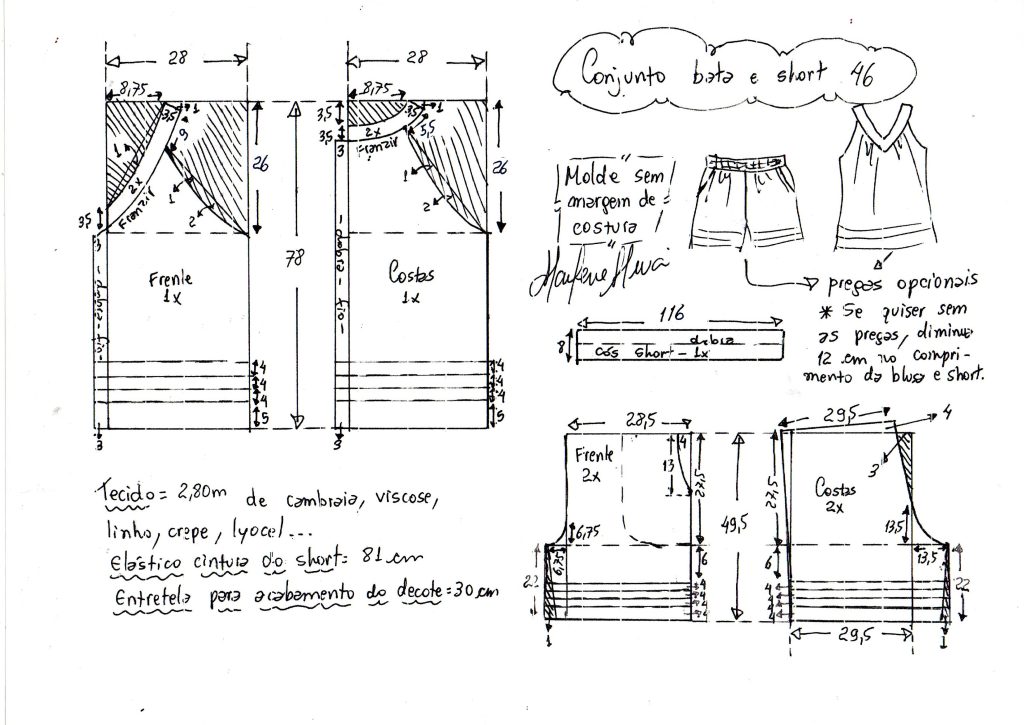 Conjunto bata e short 46
28
8,75
3,5
1
9
1
2x
Franzir
1
2
3,5
3
26
dobra - fio -
Frente
1x
4
4
4
5
3
78
28
8,75
3,5
3,5
1
3,5
5,5
2x
Franzir
3
1
2
26
dobra - fio -
Costas
1x
4
4
4
5
3
"Molde sem
margem de
costura"
pregas opcionais
* Se quiser sem
as pregas, diminua
12 cm no compri-
mento da blusa e short.
116
8
dobra
cós short - 1x
28,5
Frente
2x
4
13
27,5
6,75
6,75
22
6
4
4
4
4
1
49,5
29,5
4
3
Costas
2x
27,5
13,5
13,5
6
4
4
4
4
22
29,5
1
Tecido = 2,80m de cambraia, viscose,
linho, crepe, lyocel...
Elástico cintura do short = 81 cm
Entretela para acabamento do decote = 30 cm